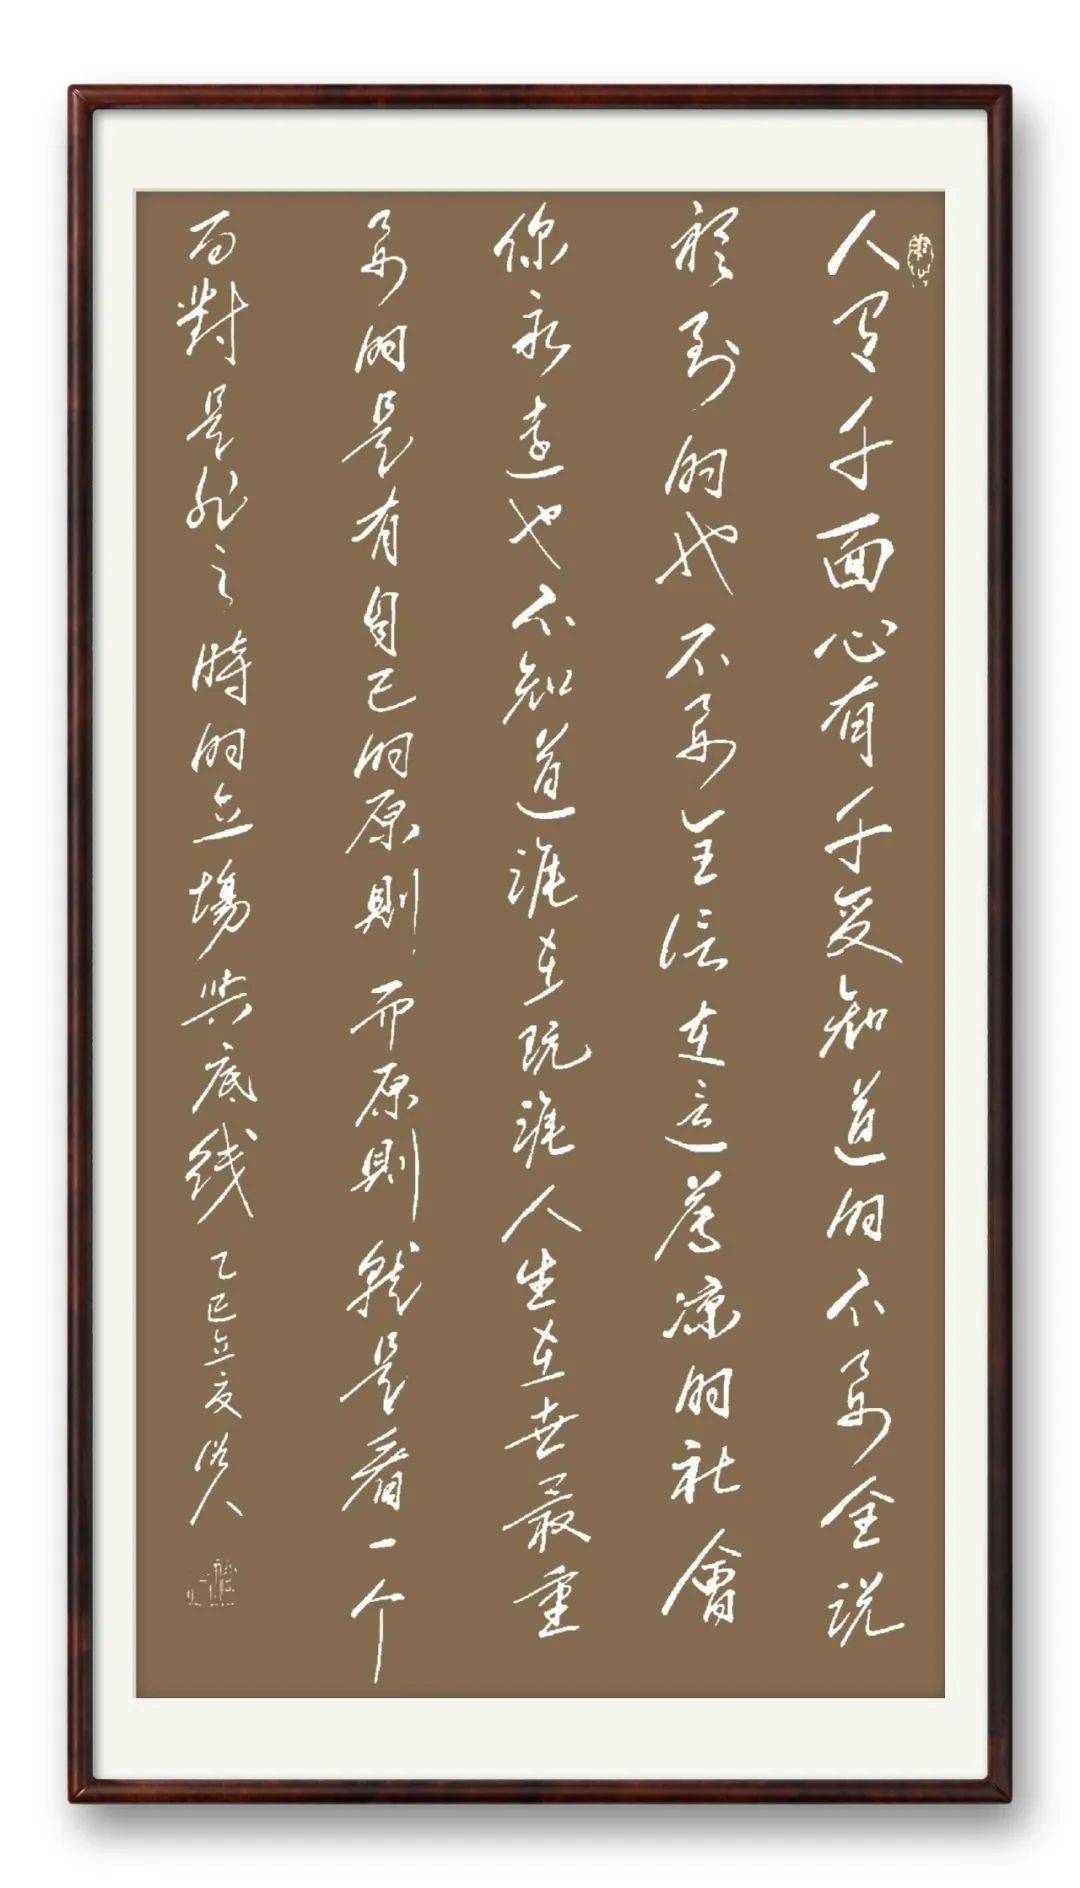 人有千面心有千变知道的不要全说
听到的也不要全信在这薄凉的社會
你永远也不知道谁在玩谁人生在世最重
要的是有自己的原則而原則就是看一个
面對是非之時的立場與底线乙巳立夏俗人